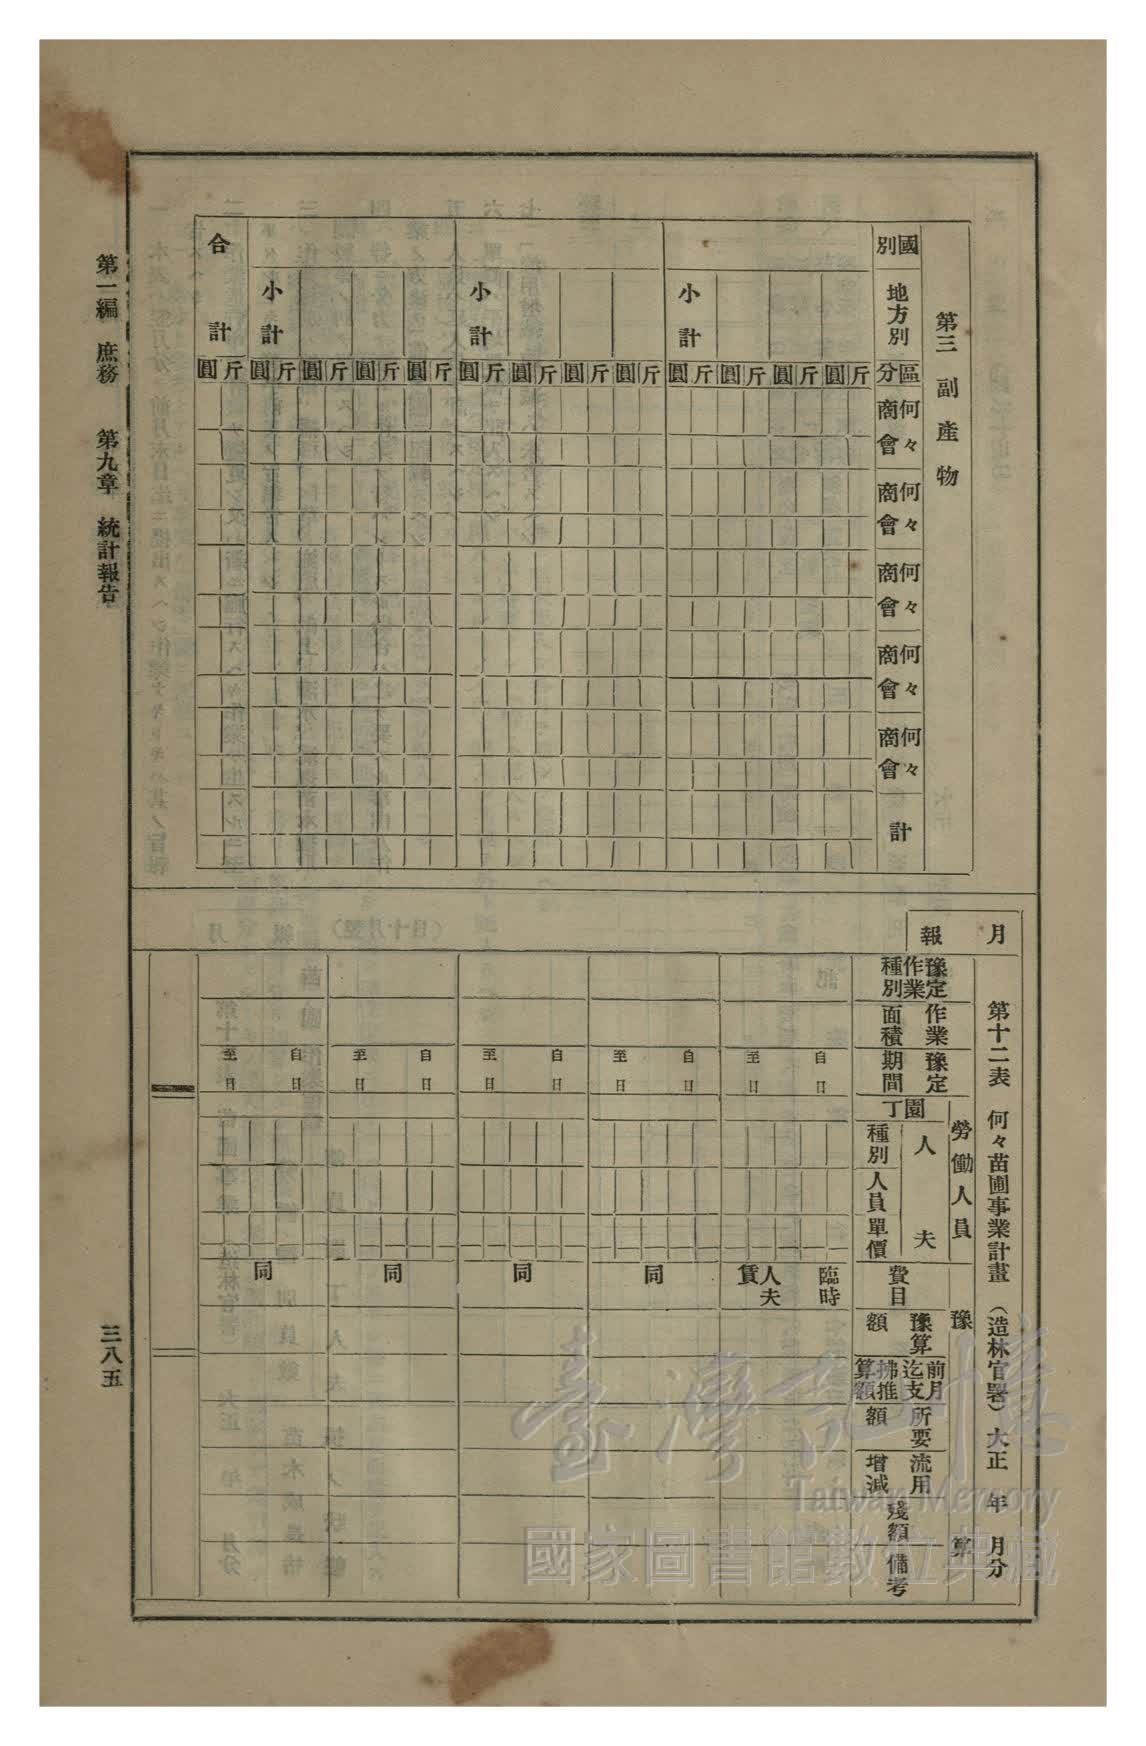 第三 副産物
國別
地方別
區分
何々商會
何々商會
何々商會
何々商會
何々商會
計
斤 圓 斤 圓 斤 圓 斤 圓
小計
斤 圓 斤 圓 斤 圓 斤 圓
小計
斤 圓 斤 圓 斤 圓 斤 圓
小計
斤 圓
合計
月報
第十二表 何々苗圃事業計畫 (造林官署) 大正 年 月分
豫定作業種別
作業面積
豫定期間
勞働人員
園丁
人夫
種別
人員
單價
豫算
費目
豫算額
前月迄支拂推算額
所要額
流用增減
殘額
備考
自 日 至 日
臨時人夫賃
自 日 至 日
同
自 日 至 日
同
自 日 至 日
同
自 日 至 日
同
第一編 庶務 第九章 統計報告
三八五
臺灣記憶
Taiwan Memory
國家圖書館數位典藏